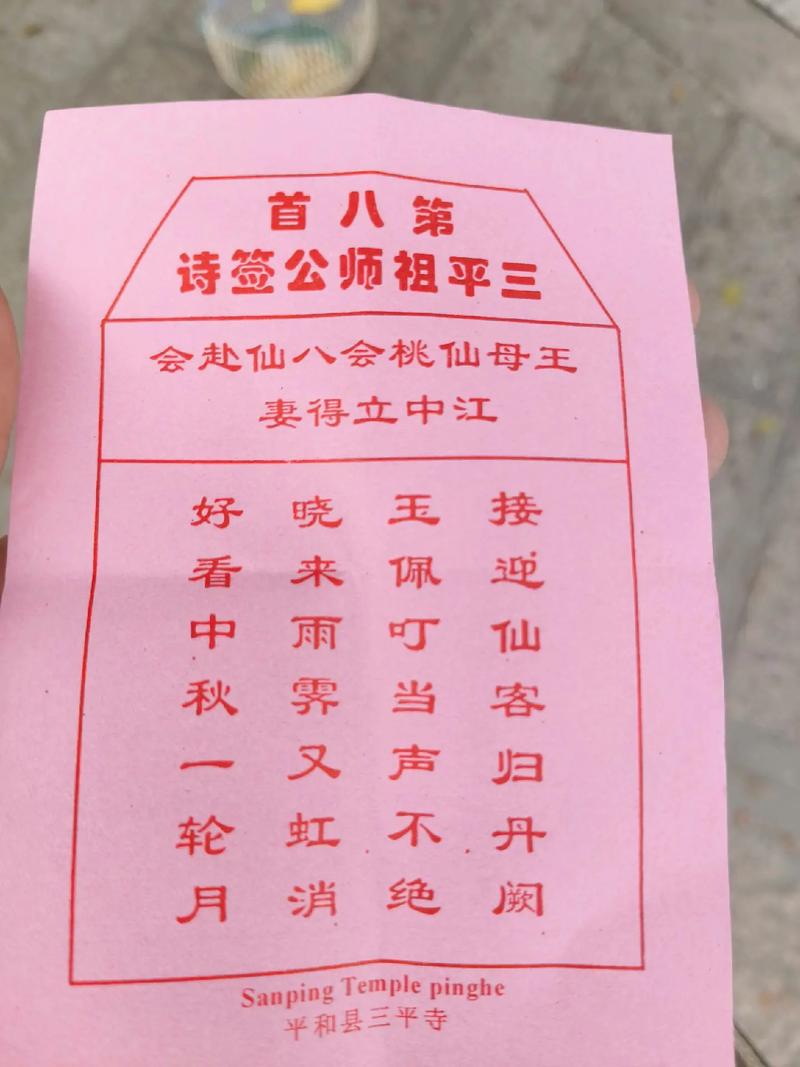 第八首
三平祖师公签诗
王母仙桃会八仙赴会
江中立得妻
接迎仙客归丹阙
玉佩叮当声不绝
晓来雨霁又虹消
好看中秋一轮月
Sanping Temple pinghe
平和县三平寺